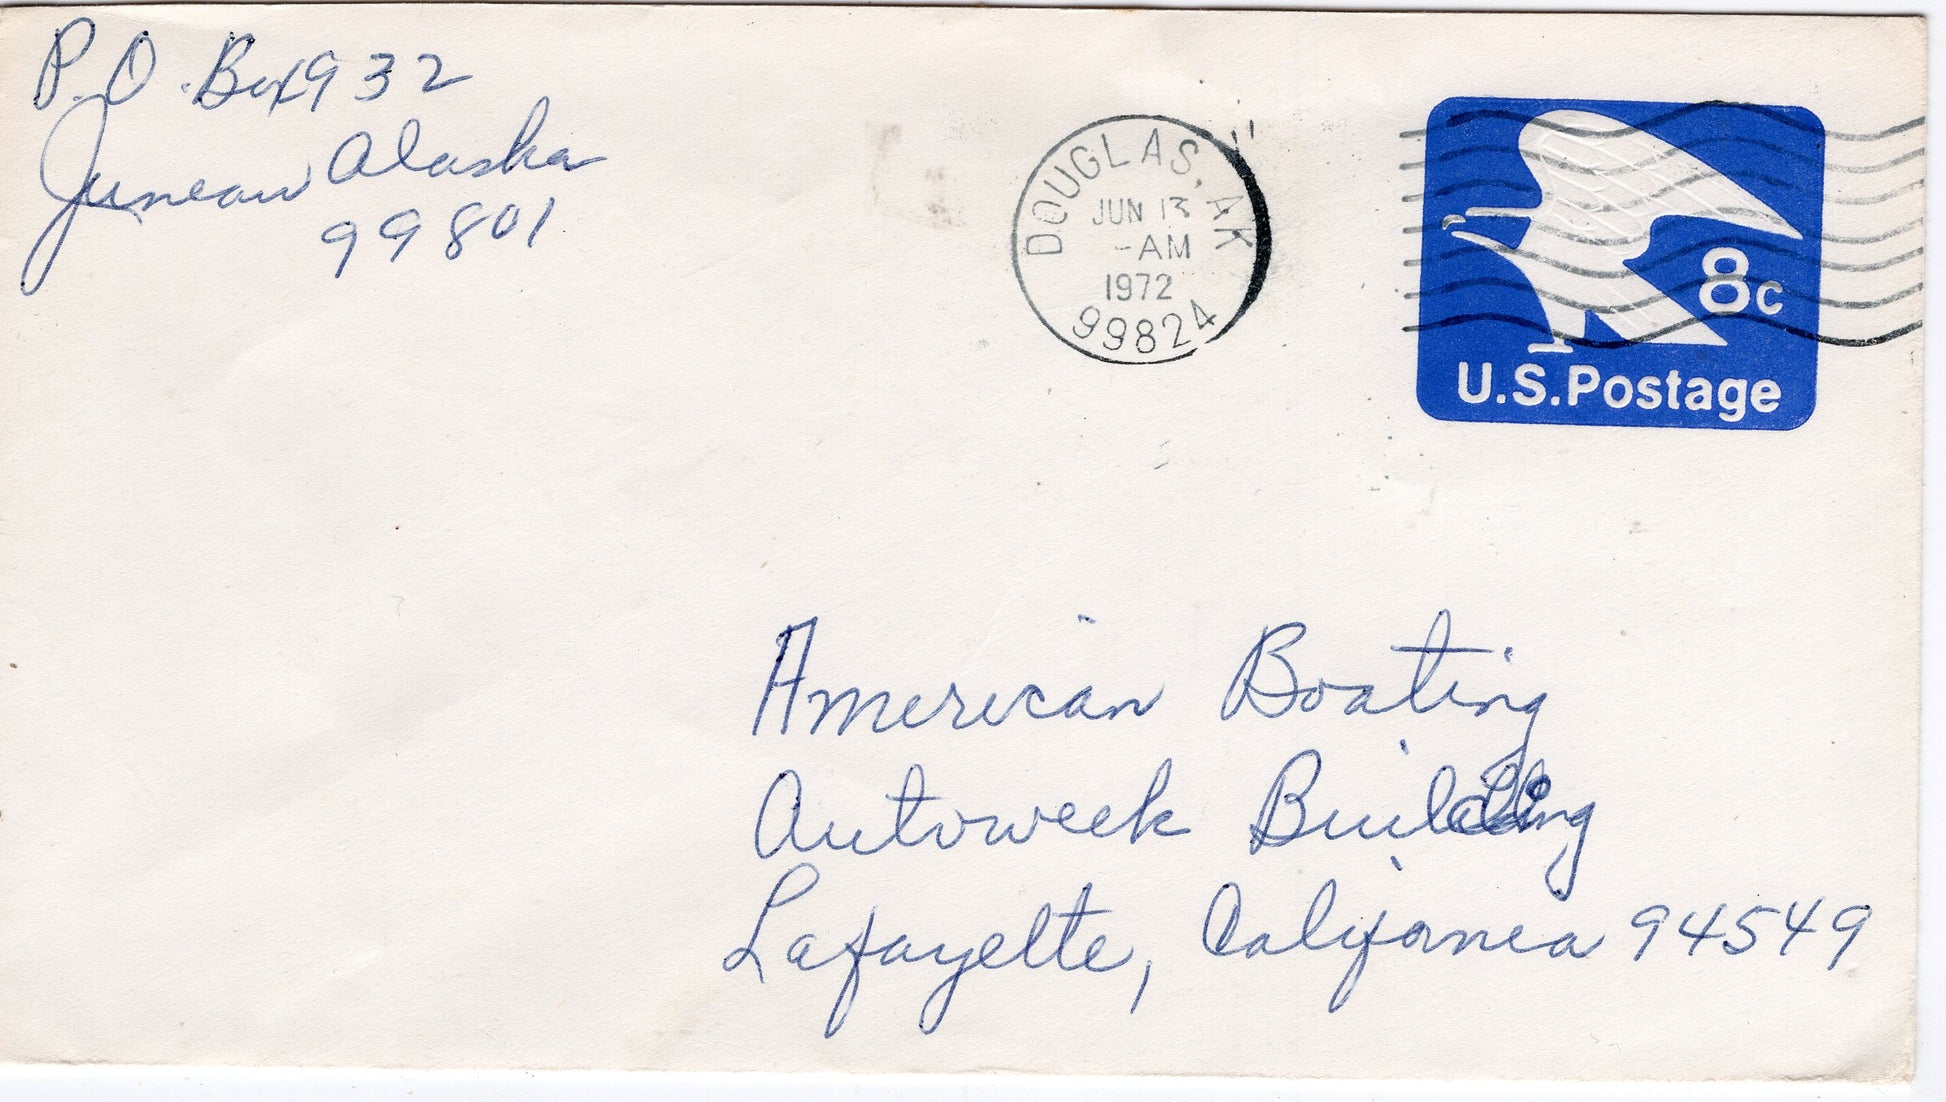 P.O. Box 932
Juneau Alaska
99801
DOUGLAS, AK
JUN 13
-AM
1972
99824
8c
U.S. Postage
American Boating
Autoweek Building
Lafayette, California 94549